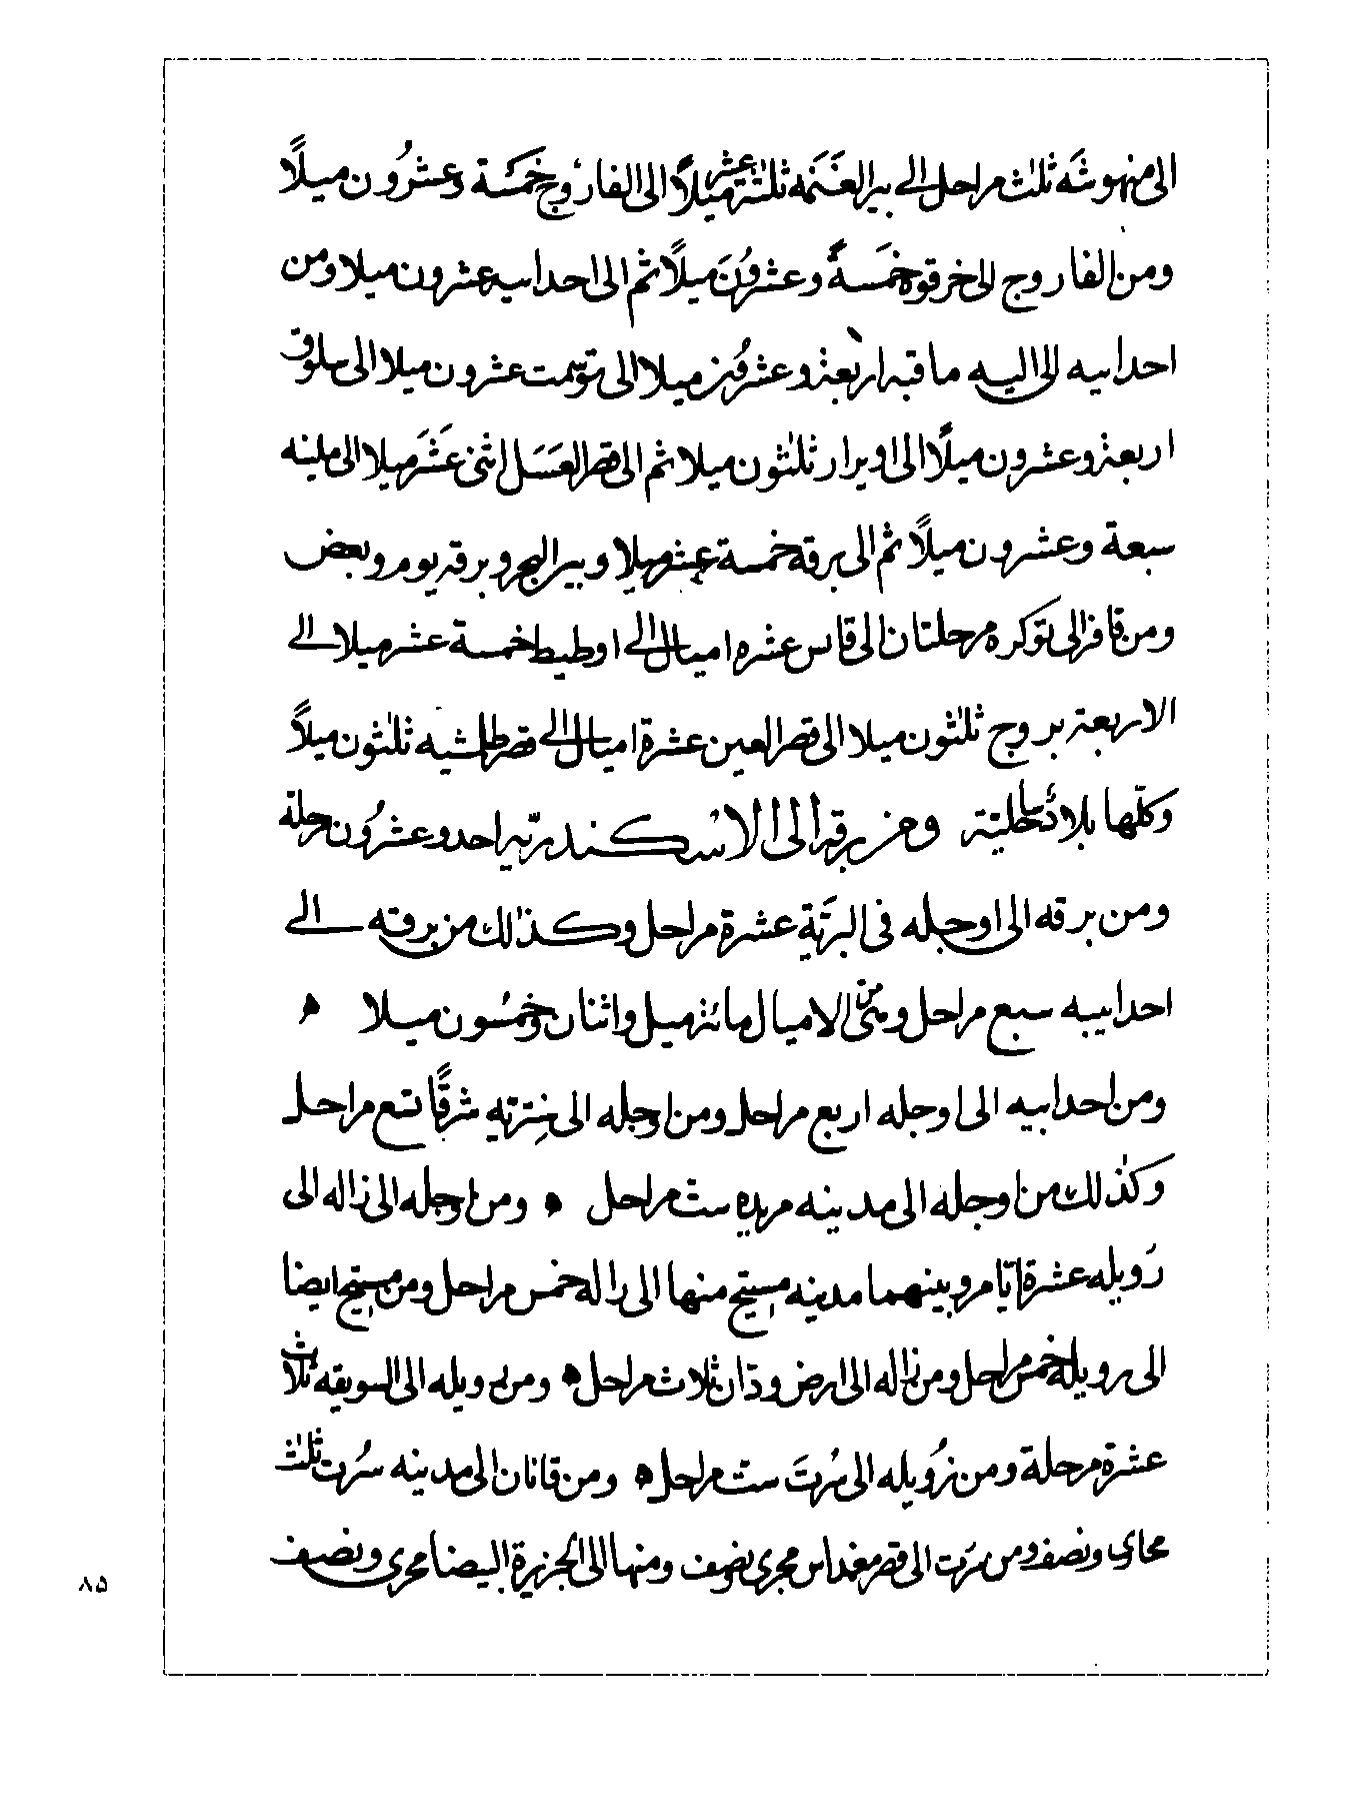 الى منهوشَه ثلث مراحل الى بير الغَنَمه ثلثة عشر ميلاً الى الفارُوج خمَسَة وعشرُون ميلاً
ومن الفاروج الى خرقوه خمَسَةً وعشروُنَ ميلاً ثم الى احدابيه عشرون ميلا ومن
احدابيه الى اليه ماقبه اربعة وعشرُون ميلا الى توسمت عشرون ميلا الى سلوق
اربعة وعشرون ميلاً الى اويرار ثلثون ميلا ثم الى قصر العَسَل اثنى عَشَر ميلا الى مليته
سبعة وعشرون ميلاً ثم الى برقه خمسة عشر ميلا وبير البحر وبرقه يوم وبعض
ومن قافز الى توكره مرحلتان الى قاس عشره اميال الى اوطيط خمسة عشر ميلا الى
الاربعة بروج ثلثون ميلا الى قصر العين عشرة اميال الى قصر طلمشيه ثلثون ميلاً
وكلّها بلاد خليّة ومن برقة الى الاسكندريّة احد وعشرُون مرحلة
ومن برقه الى اوجله فى البرَّيّة عشرة مراحل وكذلك من برقه الى
احدابيبه سبع مراحل وهى من الاميال مائة ميل واثنان وخمسُون ميلا
ومن احدابيه الى اوجله اربع مراحل ومن اوجله الى سِنتريه شرقًا تسع مراحل
وكذلك من اوجله الى مدينه مريده ست مراحل ومن اوجله الى زاله الى
زويله عشرة ايّام وبينهما مدينه مستيح منها الى زاله خمس مراحل ومن مستيح ايضا
الى زويله خمس مراحل ومن زاله الى ارض ودّان ثلاث مراحل ومن زويله الى السويقه ثلاث
عشرة مرحلة ومن زُويله الى سُرتَ ست مراحل ومن قانان الى مدينه سُرت ثلث
مجارى ونصف ومن سُرت الى قصر مغمداس مجرى ونصف ومنها الى الجزيرة البيضا مجرى ونصف
۸۵